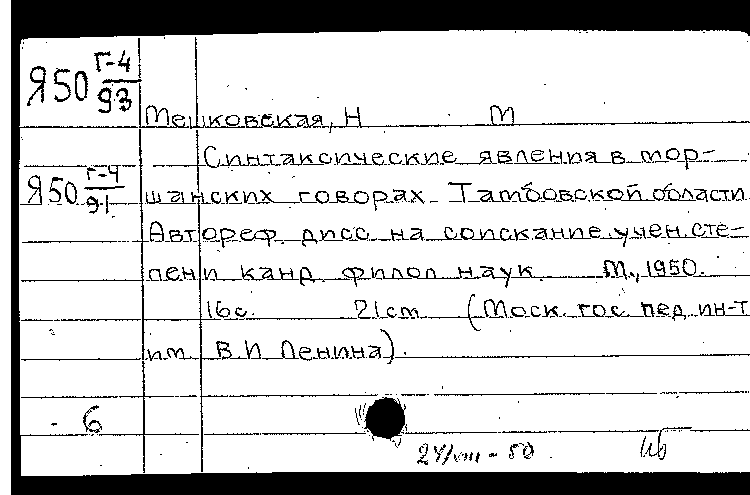 Я50 Г-4
93
Мешковская, Н М
Синтаксические явления в мор-
Я50 Г-4
91
шанских говорах Тамбовской области
Автореф. дисс. на соискание учен. сте-
пени канд филол наук М., 1950.
16с. 21см (Моск. гос. пед. ин-т
им В. И Ленина).
- 6
24/VIII - 50